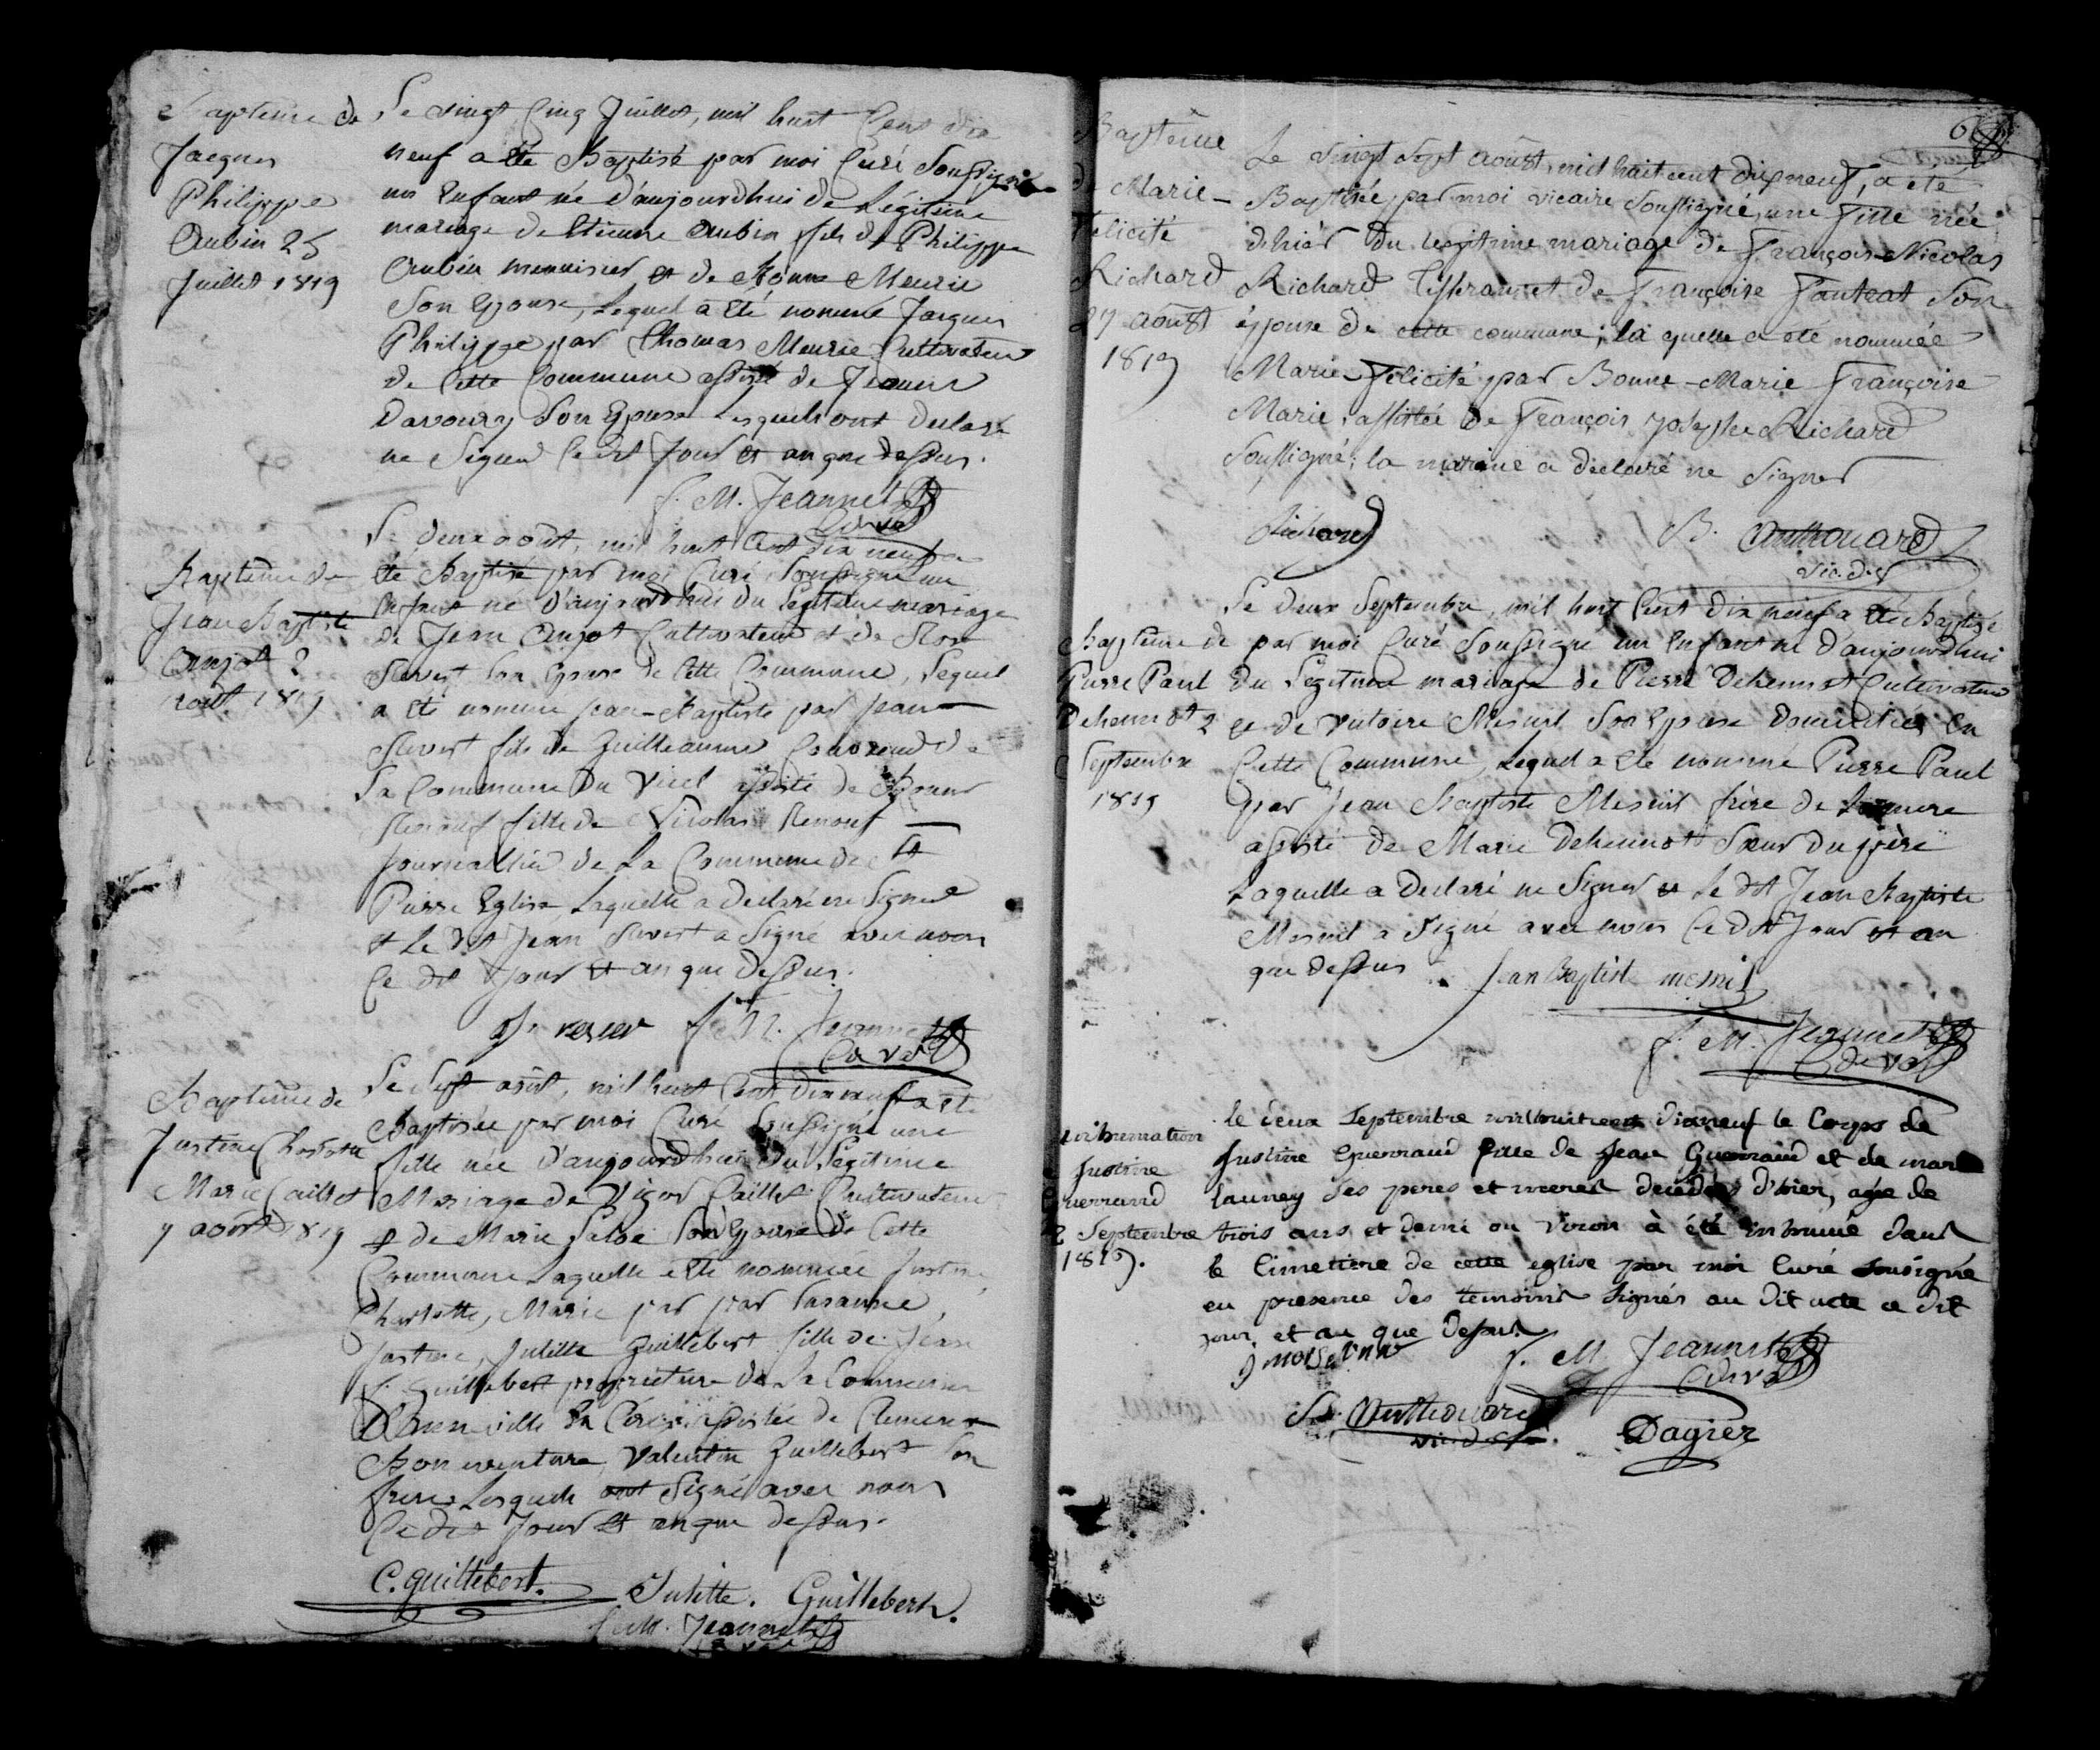 Baptême de
Jacques
Philippe
Aubin 25
Juillet 1819
Le vingt Cinq Juillet, mil huit Cent dix
neuf a été Baptisé par moi Curé Soussigné
un Enfant né d'aujourdhui de Légitime
mariage de Etienne Aubin fils de Philippe
Aubin menuisier et de Bonne Meurie
Son Epouse, Lequel a été nommé Jacques
Philippe par Thomas Meurie Cultivateur
de Cette Commune assisté de
Son Epouse Lesquels ont declaré
ne Signer Ce dit Jour et an que dessus.
f. M. Jeannet
Baptême de
Jean Baptiste
Anjot 2
août 1819
Le deux août, mil huit Cent dix neuf a
été Baptisé par moi Curé Soussigné un
Enfant né d'aujourdhui du Légitime mariage
de Jean Anjot Cultivateur et de
Son Epouse de Cette Commune, Lequel
a été nommé Jean-Baptiste par Jean
fils de Guilleaume de
La Commune Du Vicel assisté de Bonne
Renouf fille de Nicolas Renouf
Journallier de La Commune de St
Pierre Eglise, Laquelle a declaré ne Signer
et Le dit Jean a Signé avec nous
Ce dit Jour et an que dessus.
f. M. Jeannet
Baptême de
Justine Charlotte
Marie Caillot
7 août 1819
Le Sept août, mil huit Cent dix neuf a été
Baptisée par moi Curé Soussigné une
fille née d'aujourdhui Du Légitime
Mariage de Vigor Caillot Cultivateur
et de Marie Son Epouse de Cette
Commune Laquelle a été nommée Justine
Charlotte, Marie par par Susanne,
Justine, Juliette Guillebert fille de Jean
f. Guillebert propriétaire de La Commune
assistée de
Bonaventure, Valentin Guillebert Son
frere Lesquels ont Signé avec nous
Ce dit Jour et an que dessus.
C. Guillebert.
Juliette. Guillebert.
f. M. Jeannet
6
Baptême
de Marie-
Felicité
Richard
27 août
1819
Le vingt Sept août, mil huit cent dix neuf, a été
Baptisée par moi vicaire Soussigné, une fille née
dehier du legitime mariage de François-Nicolas
Richard et de Françoise Son
épouse de cette commune; la quelle a été nommée
Marie-Felicité par Bonne-Marie Françoise
Marie, assistée de François Richard
Soussigné; la maraine a declaré ne Signer
Richard
B. Anthouard
vic. d.
Baptême de
Pierre Paul
Dehennot 2
Septembre
1819
Le deux Septembre, mil huit Cent dix neuf a été Baptisé
par moi Curé Soussigné un Enfant né d'aujourdhui
Du Légitime mariage de Pierre Dehennot Cultivateur
et de Victoire Mesnil Son Epouse domiciliés En
Cette Commune, Lequel a été nommé Pierre Paul
par Jean Baptiste Mesnil frère de La mere
assisté de Marie Dehennot Sœur du père
Laquelle a Declaré ne Signer et Le dit Jean Baptiste
Mesnil a Signé avec nous Ce dit Jour et an
que dessus
Jean Baptiste mesnil
f. M. Jeannet
inhumation
Justine
Guerrand
2 Septembre
1819.
le deux Septembre mil huit cent dix neuf le Corps de
Justine Guerrand fille de Jean Guerrand et de marie
launey Ses peres et meres decedée d'hier, agée de
trois ans et demi ou viron à été inhumé dans
le Cimetiere de cette eglise par moi Curé Sousigné
en presence des temoins Signés au dit acte ce dit
jour et an que dessus
f. M. Jeannet
B. Anthouard
vic. d.
Dagier